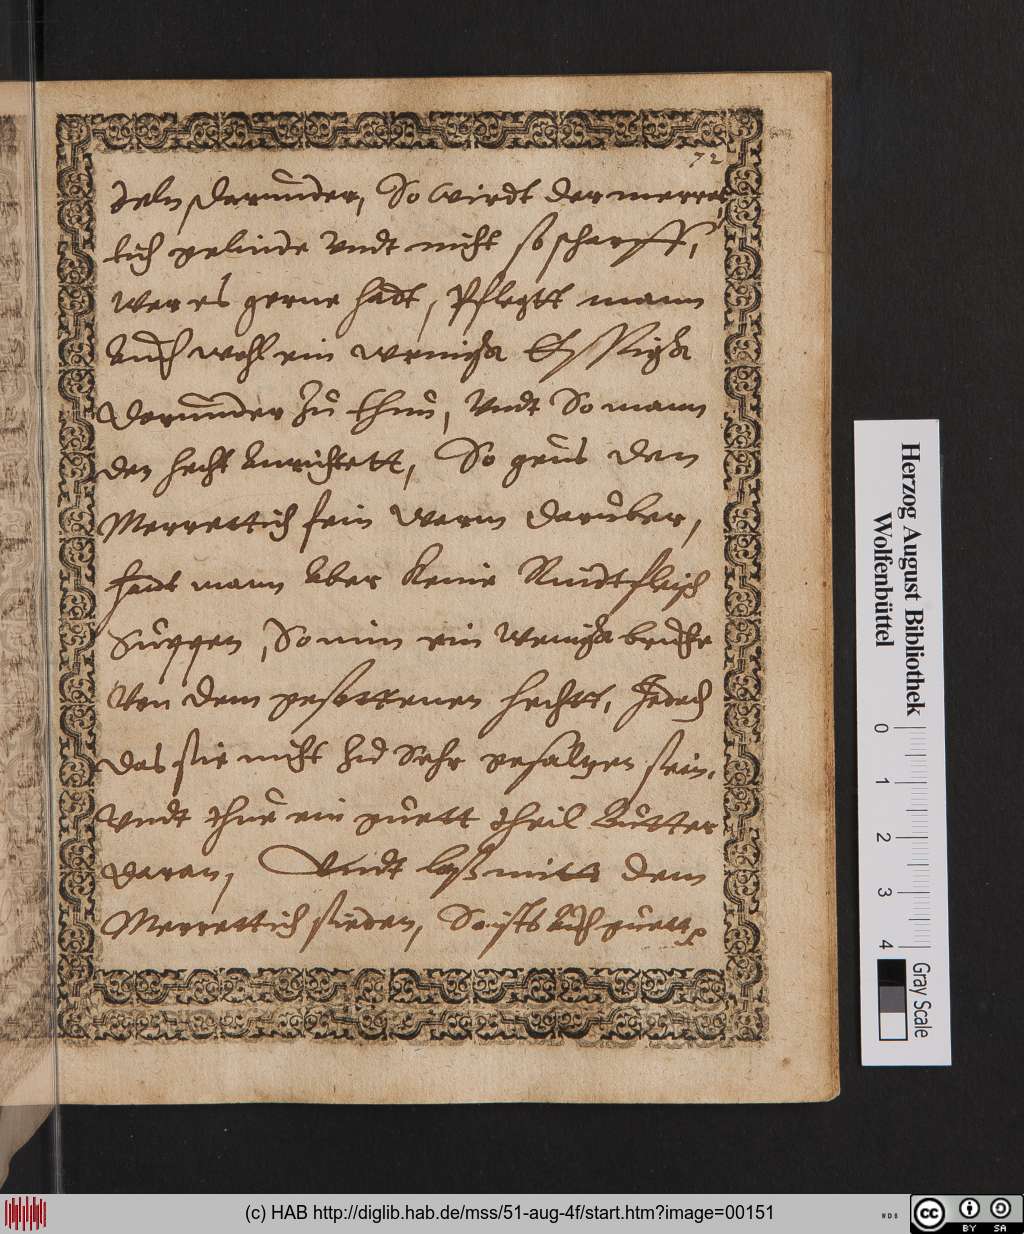 72
deln darunder, So wirdt der merret,
lich gelinde Vndt nicht so scharff,
wer es gerne hadt, Pflegtt mann
Auch wohl ein weniga Essiga
darunder Zu thun, Vndt So mann
den hecht Anrichtett, So geus den
Merrettich fein warm daruber,
hadt mann Aber keine Rindtfleisch
Suppen, So nim ein weniga bruhe
Von dem gesottenen hechtt, Jedoch
das sie nicht zu Sehr gesaltzen sein,
Vndt thue ein guett theil Butter
daran, Vndt lass mitt dem
Merrettich sieden, So ists Auch guett
Herzog August Bibliothek
Wolfenbüttel
0 1 2 3 4
Gray Scale
(c) HAB http://diglib.hab.de/mss/51-aug-4f/start.htm?image=00151
WDB
cc
BY SA